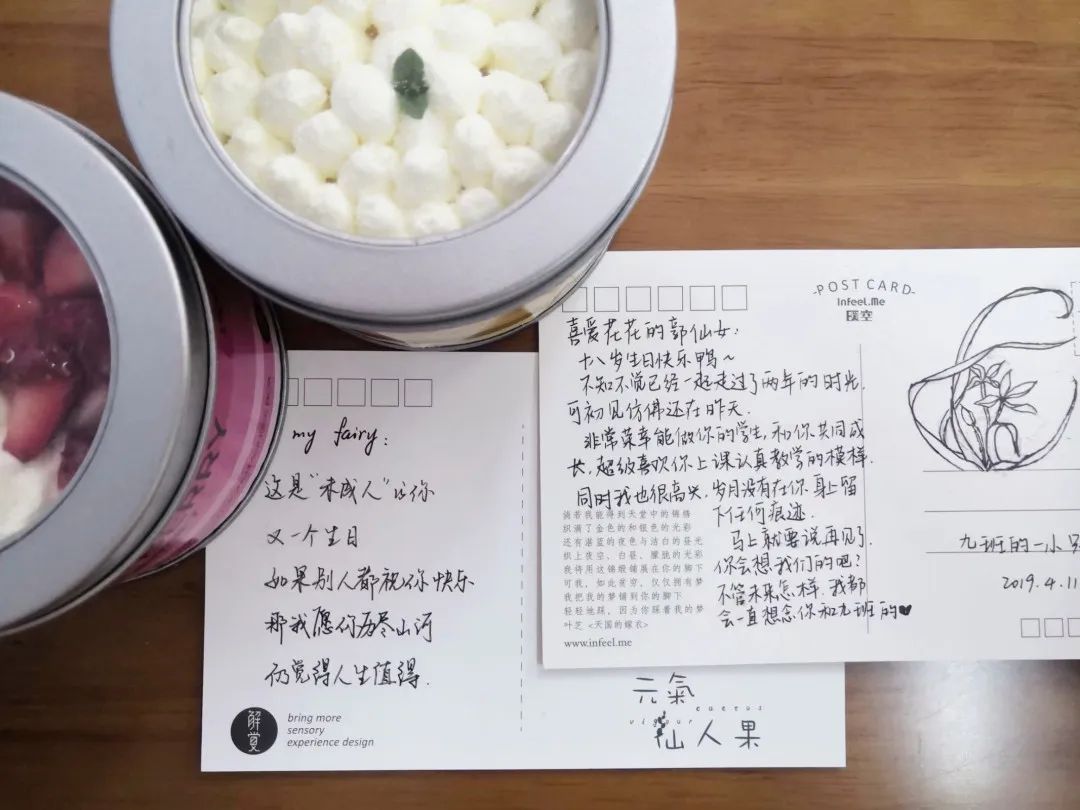 my fairy:
这是“未成人”的你
又一个生日
如果别人都祝你快乐
那我愿你历尽山河
仍觉得人生值得.
解覺
bring more
sensory
experience design
元氣
cactus
vigour
仙人果
POST CARD
Infeel.Me
璞空
喜爱花花的郭仙女:
十八岁生日快乐鸭~
不知不觉已经一起走过了两年的时光.
可初见仿佛还在昨天.
非常荣幸能做你的学生,和你共同成
长.超级喜欢你上课认真教学的模样.
同时我也很高兴.岁月没有在你身上留
下任何痕迹.
马上就要说再见了.
你会想我们的吧?
不管未来怎样.我都
会一直想念你和九班的♥
倘若我能得到天堂中的锦缮
织满了金色的和银色的光彩
还有湛蓝的夜色与洁白的昼光
烘上夜空、白昼、朦胧的光彩
我将用这锦缎铺展在你的脚下
可我,如此贫穷,仅仅拥有梦
我把我的梦铺到你的脚下
轻轻地踩,因为你踩着我的梦
叶芝 <天国的嫁衣>
www.infeel.me
九班的一小只
2019.4.11